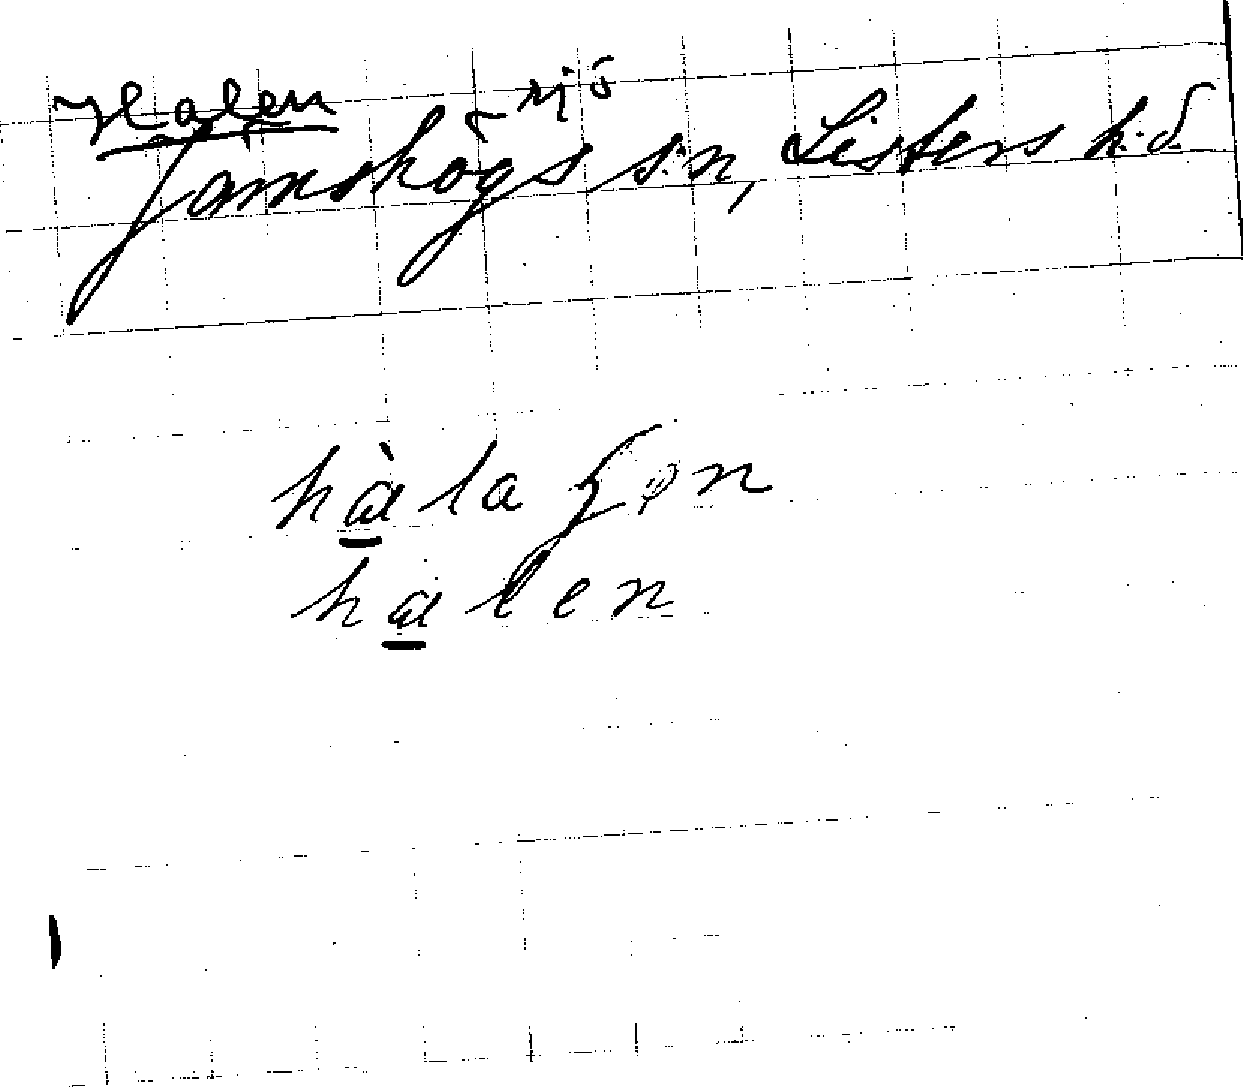 Halen sjö
Jämshögs s:n, Listers h:d
hàlaʃøn
halen